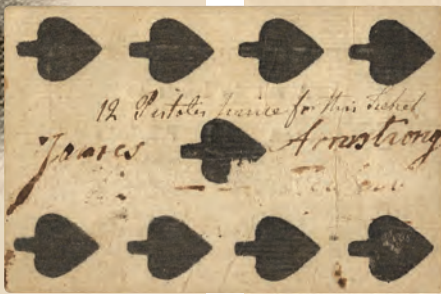 12 Pistoles for this Ticket
James Armstrong